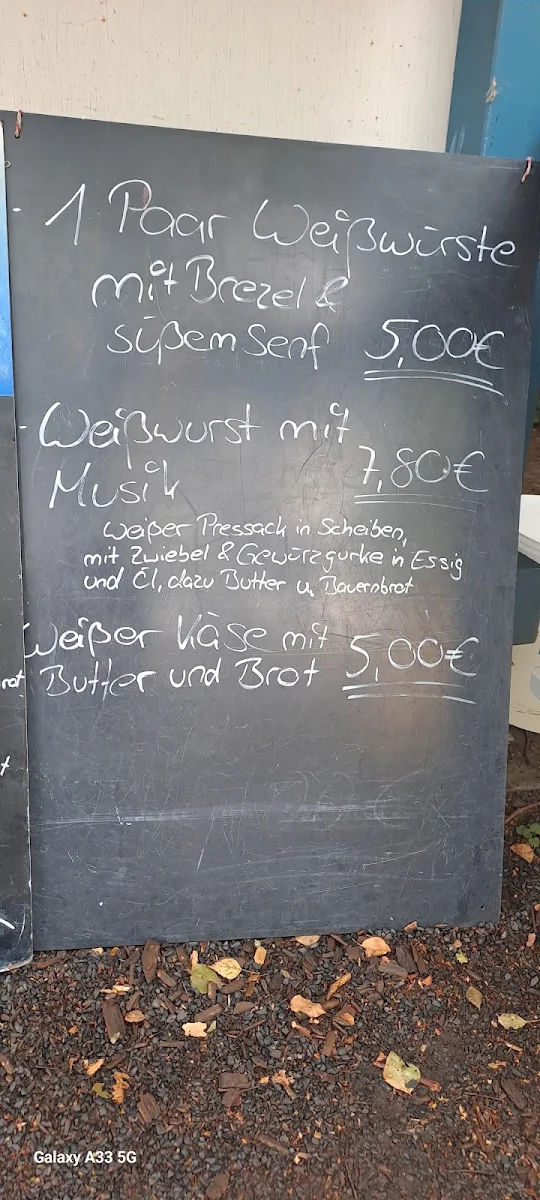 1 Paar Weißwürste
mit Brezel &
süßem Senf 5,00€
Weißwurst mit
Musik 7,80€
Weißer Pressack in Scheiben,
mit Zwiebel & Gewürzgurke in Essig
und Öl, dazu Butter u. Bauernbrot
Weißer Käse mit
Butter und Brot 5,00€
rot
Galaxy A33 5G